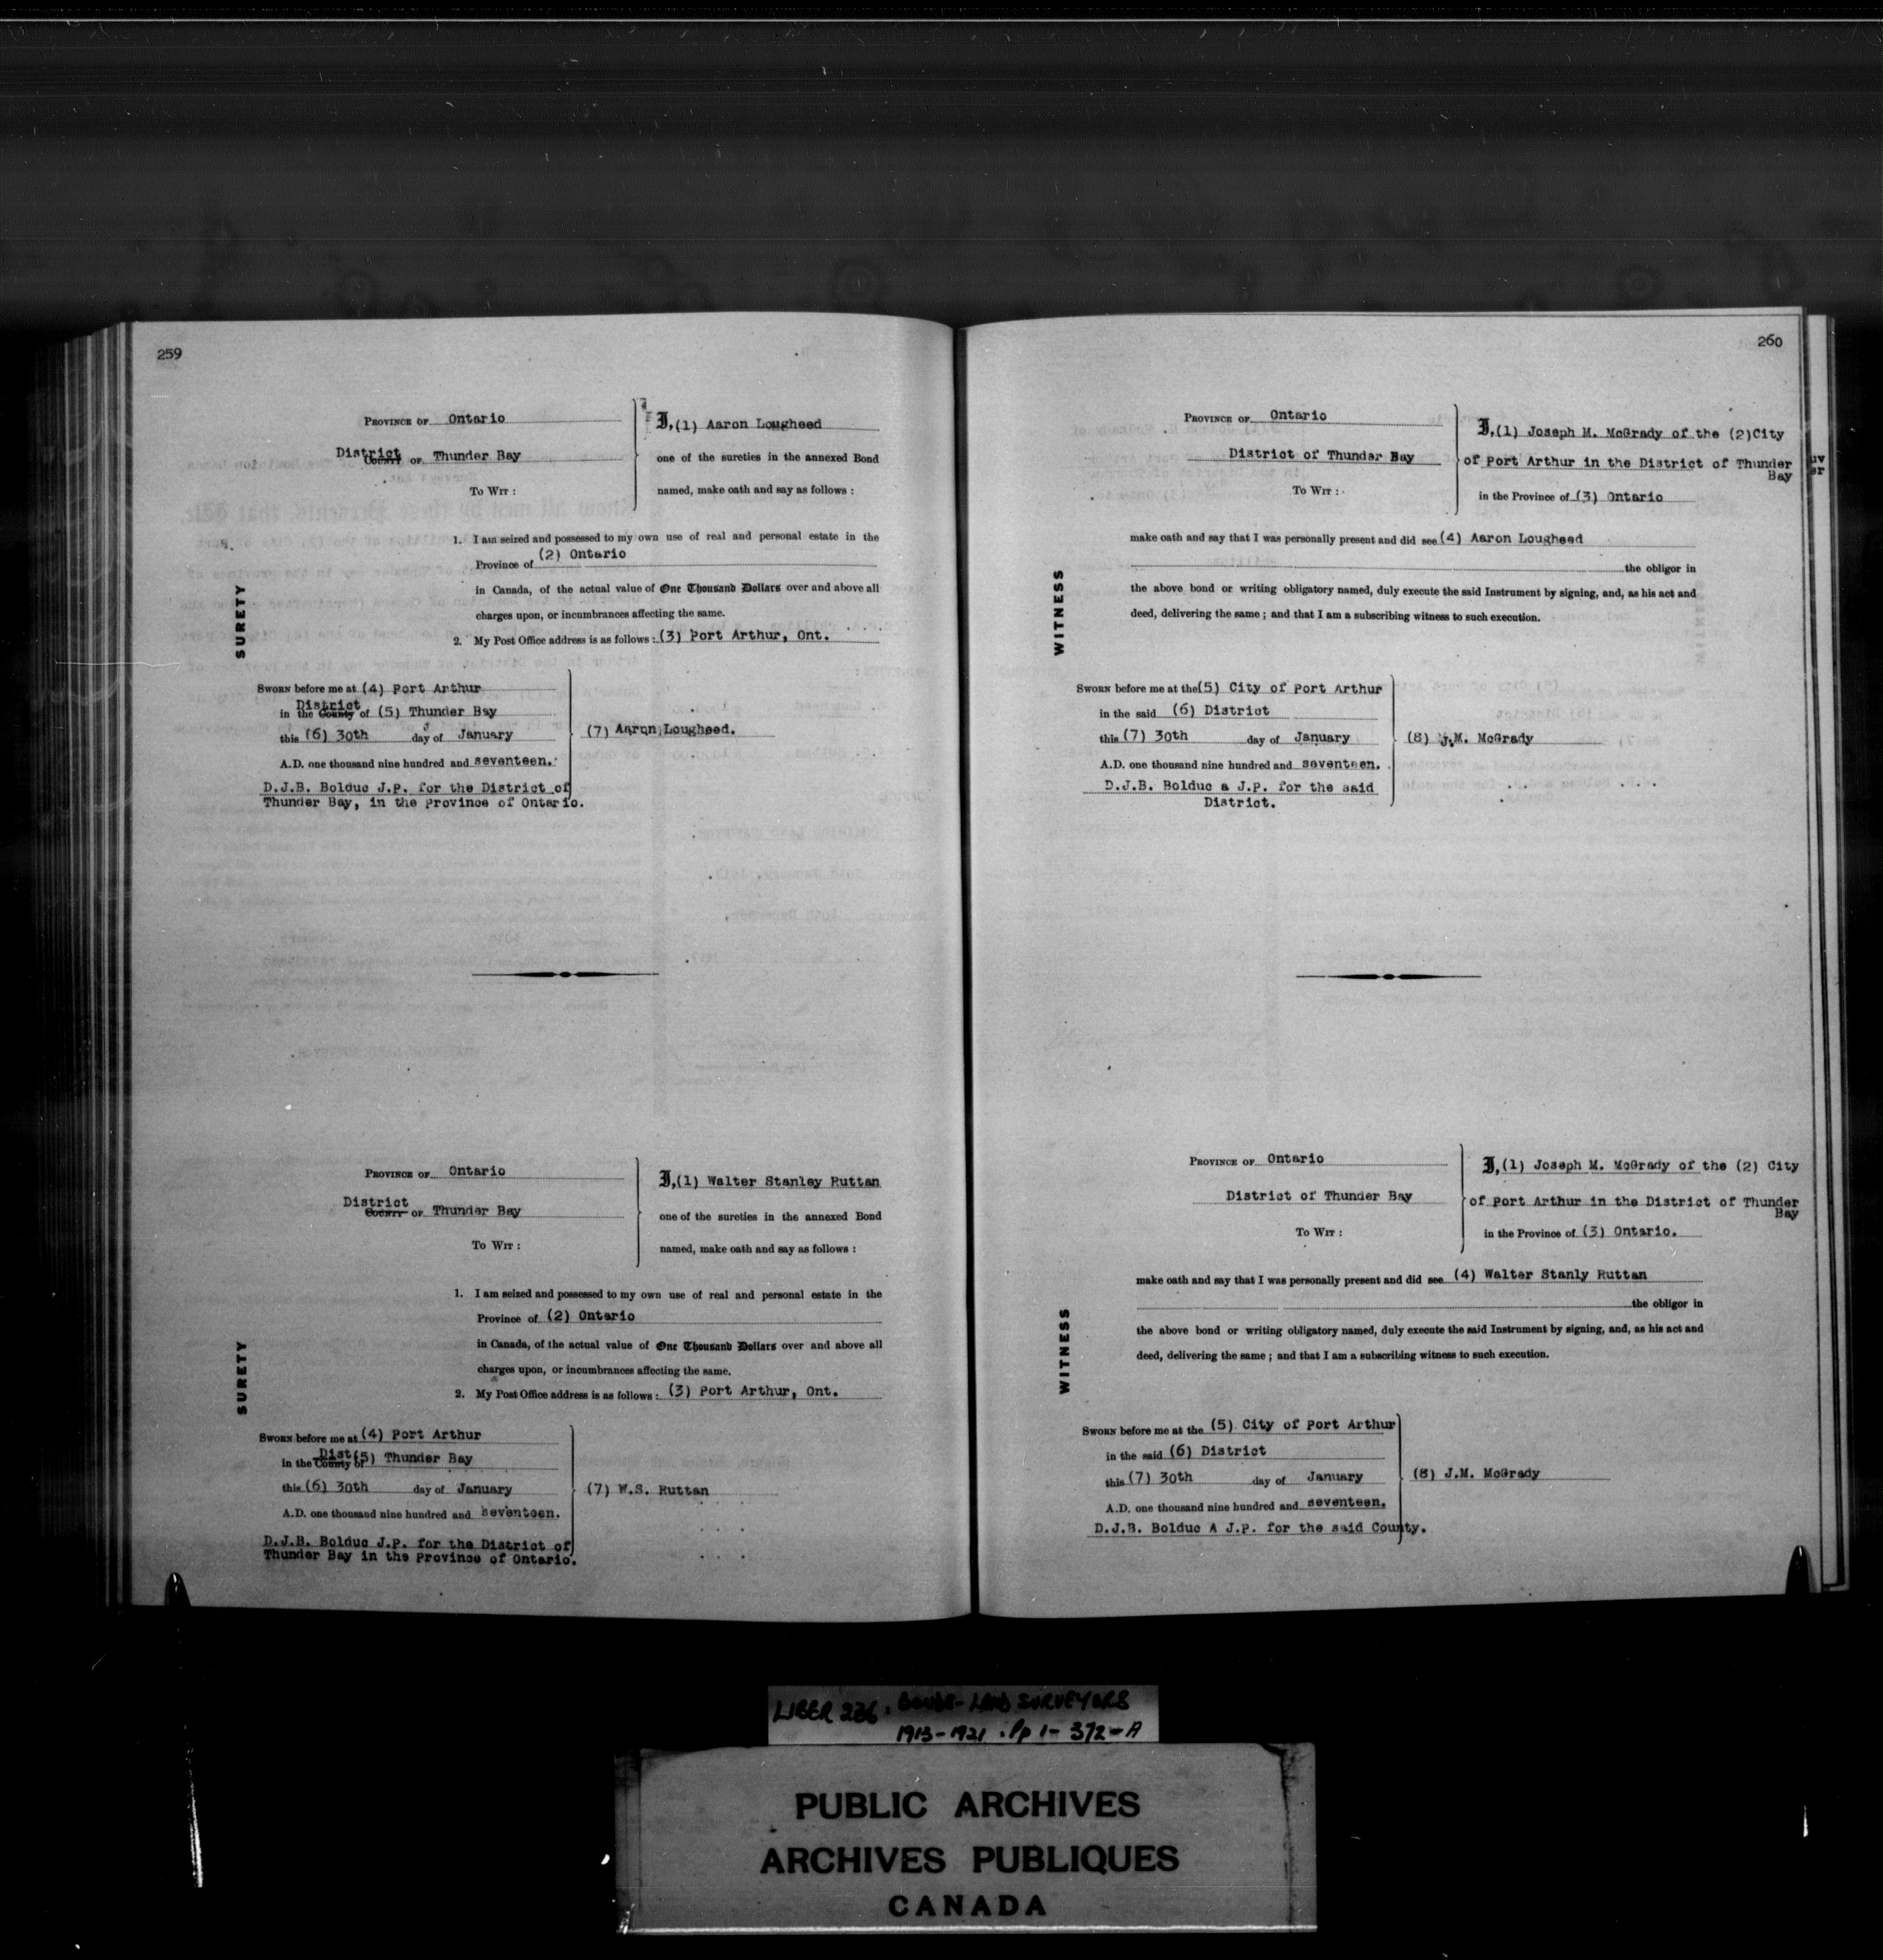 259
PROVINCE OF Ontario
District
COUNTY OF Thunder Bay
TO WIT :
I, (1) Aaron Lougheed
one of the sureties in the annexed Bond
named, make oath and say as follows :
SURETY
1. I am seized and possessed to my own use of real and personal estate in the
(2) Ontario
Province of
in Canada, of the actual value of One Thousand Dollars over and above all
charges upon, or incumbrances affecting the same.
2. My Post Office address is as follows : (3) Port Arthur, Ont.
SWORN before me at (4) Port Arthur
District
in the County of (5) Thunder Bay
this (6) 30th day of January
A.D. one thousand nine hundred and seventeen.
D.J.B. Bolduc J.P. for the District of
Thunder Bay, in the Province of Ontario.
(7) Aaron Lougheed.
PROVINCE OF Ontario
District
COUNTY OF Thunder Bay
TO WIT :
I, (1) Walter Stanley Ruttan
one of the sureties in the annexed Bond
named, make oath and say as follows :
SURETY
1. I am seized and possessed to my own use of real and personal estate in the
Province of (2) Ontario
in Canada, of the actual value of One Thousand Dollars over and above all
charges upon, or incumbrances affecting the same.
2. My Post Office address is as follows : (3) Port Arthur, Ont.
SWORN before me at (4) Port Arthur
Dist
in the County of (5) Thunder Bay
this (6) 30th day of January
A.D. one thousand nine hundred and seventeen.
D.J.B. Bolduc J.P. for the District of
Thunder Bay in the Province of Ontario.
(7) W.S. Ruttan
260
PROVINCE OF Ontario
District of Thunder Bay
TO WIT :
I, (1) Joseph M. McGrady of the (2) City
of Port Arthur in the District of Thunder
Bay
in the Province of (3) Ontario
uv
er
WITNESS
make oath and say that I was personally present and did see (4) Aaron Lougheed
the obligor in
the above bond or writing obligatory named, duly execute the said Instrument by signing, and, as his act and
deed, delivering the same ; and that I am a subscribing witness to such execution.
SWORN before me at the (5) City of Port Arthur
in the said (6) District
this (7) 30th day of January
A.D. one thousand nine hundred and seventeen.
D.J.B. Bolduc a J.P. for the said
District.
(8) J.M. McGrady
PROVINCE OF Ontario
District of Thunder Bay
TO WIT :
I, (1) Joseph M. McGrady of the (2) City
of Port Arthur in the District of Thunder
Bay
in the Province of (3) Ontario.
WITNESS
make oath and say that I was personally present and did see (4) Walter Stanly Ruttan
the obligor in
the above bond or writing obligatory named, duly execute the said Instrument by signing, and, as his act and
deed, delivering the same ; and that I am a subscribing witness to such execution.
SWORN before me at the (5) City of Port Arthur
in the said (6) District
this (7) 30th day of January
A.D. one thousand nine hundred and seventeen.
D.J.B. Bolduc A J.P. for the said County.
(8) J.M. McGrady
LIBER 236. BONDS - LAND SURVEYORS
1913-1921 . Pp 1- 372-A
PUBLIC ARCHIVES
ARCHIVES PUBLIQUES
CANADA